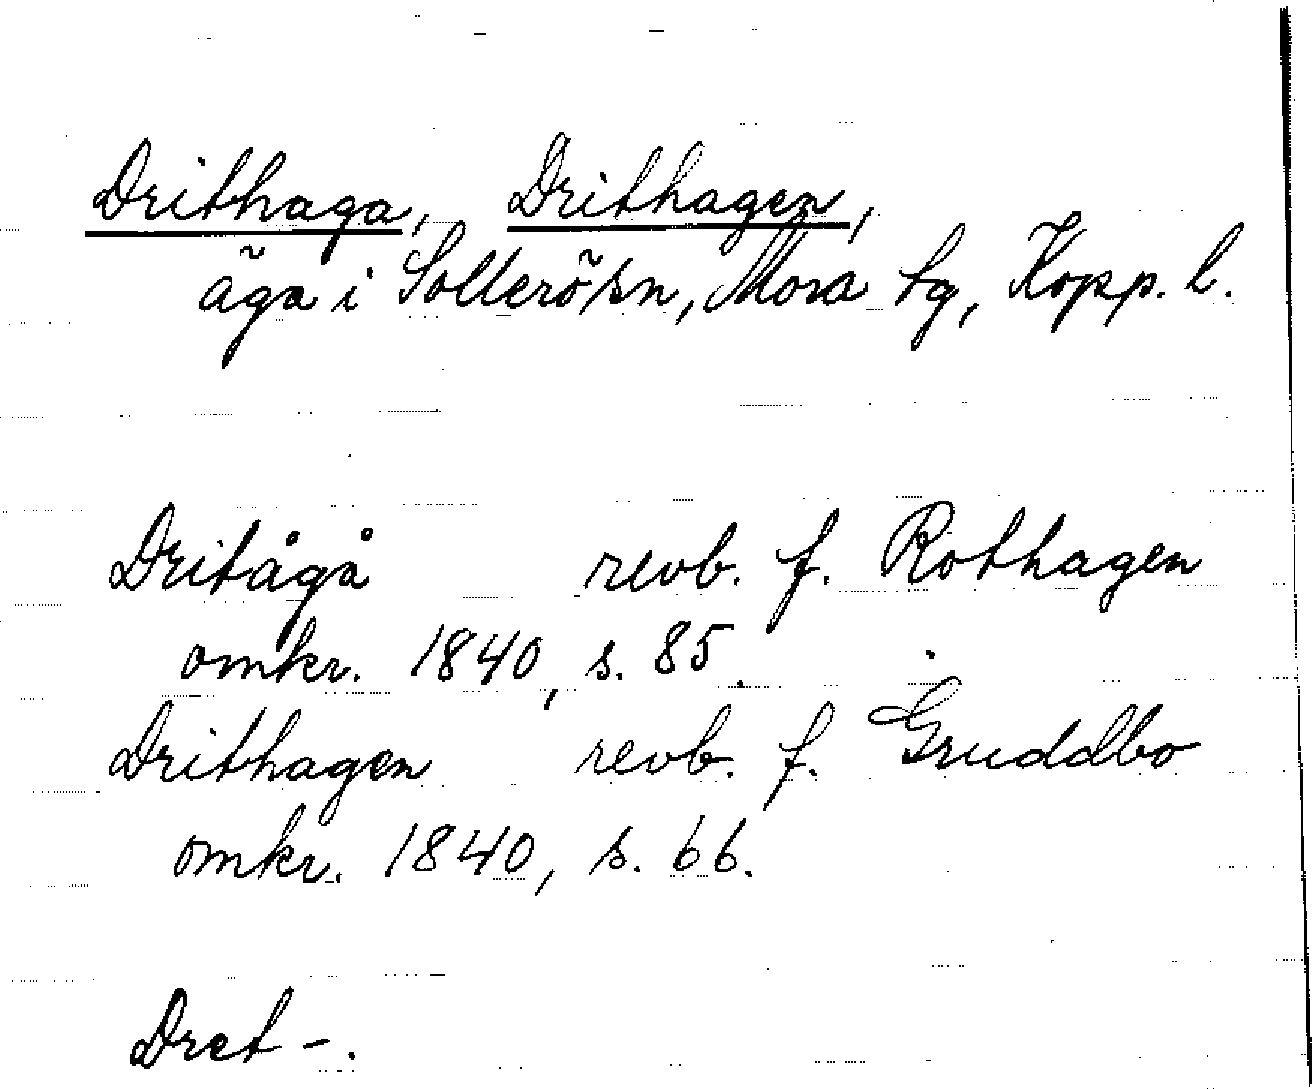 Drithaga, Drithagen,
äga i Sollerö sn, Mora tg, Kopp. l.
Dritågå revb. f. Rothagen
omkr. 1840, s. 85.
Drithagen revb. f. Gruddbo
omkr. 1840, s. 66.
Dret-.